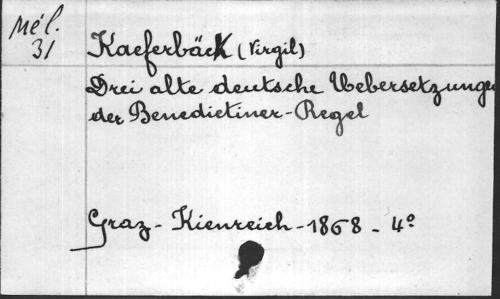 Mél.
31
Kaeferbäck (Virgil)
Drei alte deutsche Uebersetzungen
der Benedictiner-Regel
Graz - Kienreich - 1868 - 4º